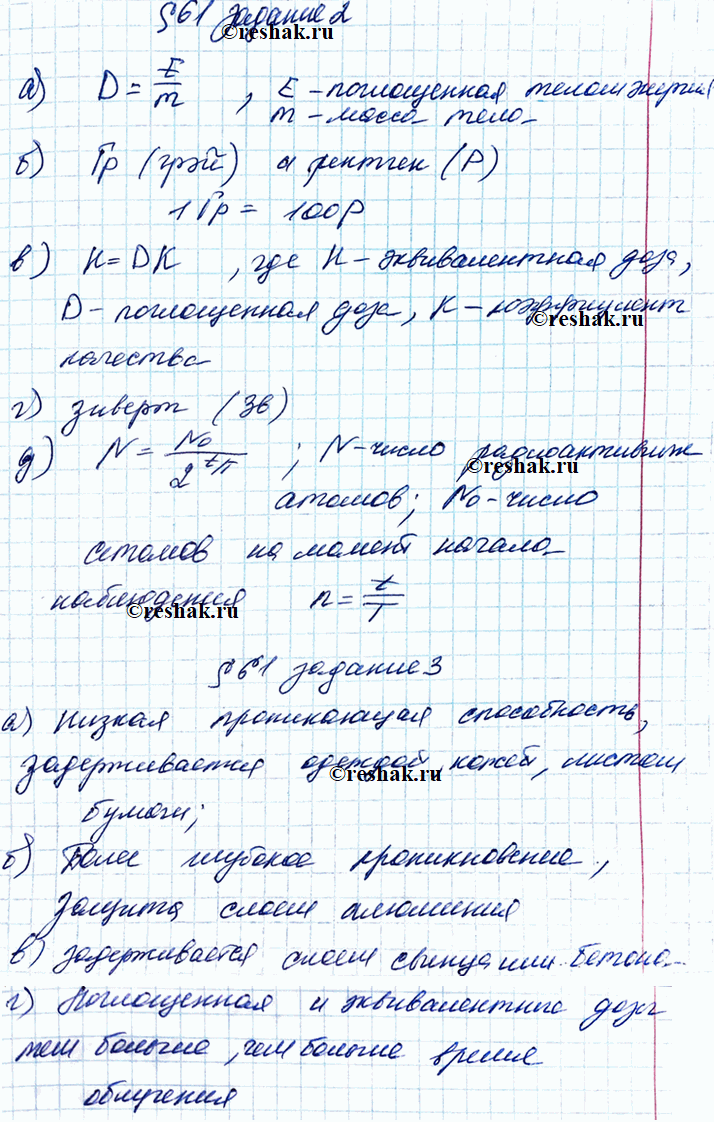 §61 задание 2
©reshak.ru
а) D = E/m , E – поглощенная телом энергия
m – масса тела
б) Гр (грэй) и рентген (Р)
1 Гр = 100Р
в) H = DK , где H – эквивалентная доза,
D – поглощенная доза, K – коэффициент
©reshak.ru
качества
г) зиверт (Зв)
д) N = N₀/2^(t/T) ; N – число радиоактивных
©reshak.ru
атомов; N₀ – число
атомов на момент начала
наблюдения n = t/T
©reshak.ru
§61 задание 3
а) Низкая проникающая способность,
задерживается одеждой, кожей, листом
©reshak.ru
бумаги;
б) Более глубокое проникновение,
защита слоем алюминия
в) задерживается слоем свинца или бетона
г) Поглощенная и эквивалентная дозы
тем больше, чем больше время
облучения